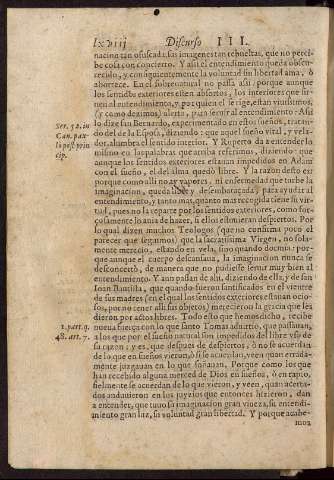 lxviij Discurso III.
nacion tan ofuscada sus imagenes tan rebueltas, que no perci-
be cosa con concierto. Y assi el entendimiento queda obscu-
recido, y consiguientemente la voluntad sin libertad ama, ò
aborrece. En el sobrenatural no passa assi, porque aunque
los sentidos exteriores esten absortos, los interiores que sir-
uen al entendimiento, y por quien el se rige, estan viuissimos,
(y como dezimos) alerta, para seruir al entendimiento: Assi
lo dize san Bernardo, experimentado en estos sueños, tratan-
Ser. 52. in
Can. pau-
lo post prin
cip.
do del de la Esposa, diziendo: que aquel sueño vital, y vela-
dor, alumbra el sentido interior. Y Ruperto da a entender lo
mismo en las palabras que arriba referimos, diziendo: que
aunque los sentidos exteriores estauan impedidos en Adam
con el sueño, el del alma quedò libre. Y la razon desto es:
porque como alli no ay vapores, ni enfermedad que turbe la
imaginacion, queda libre y desembaraçada, para ayudar al
entendimiento, y tanto mas, quanto mas recogida tiene su vir-
tud, pues no la reparte por los sentidos exteriores, como for-
çosamente lo auia de hazer, si ellos estuuieran despiertos. Por
lo qual dizen muchos Teologos (que no confirma poco el
parecer que seguimos) que la sacratissima Virgen, no sola-
mente merecio, estando en vela, sino quando dormia: por-
que aunque el cuerpo descansaua, la imaginacion nunca se
desconcertò, de manera que no pudiesse seruir muy bien el
entendimiento. Y aun passan de ahi, diziendo de ella, y de san
Ioan Bautista, que quando fueron santificados en el vientre
de sus madres (en el qual los sentidos exteriores estauan ocio-
sos, por no tener assi sus objetos) merecieron la gracia que les
dieron por actos libres. Todo esto que hemos dicho, recibe
1. part. q.
48. art. 7.
nueua fuerça con lo que santo Tomas aduirtio, que passauan,
a los que por el sueño natural son impedidos del libre vso de
su razon; y es, que despues de despiertos, ò no se acuerdan
de lo que en sueños vieron, ò si se acuerdan, veen quan errada-
mente juzgauan en lo que soñauan. Porque como los que
han recebido alguna merced de Dios en sueños, ò en rapto,
facilmente se acuerdan de lo que vieron, y veen, quan acerta-
dos anduuieron en los juyzios que entonces hizieron, dan
a entender, que tuuo su imaginacion gran viueza, su entendi-
miento gran luz, su voluntad gran libertad. Y porque acabe-
mos